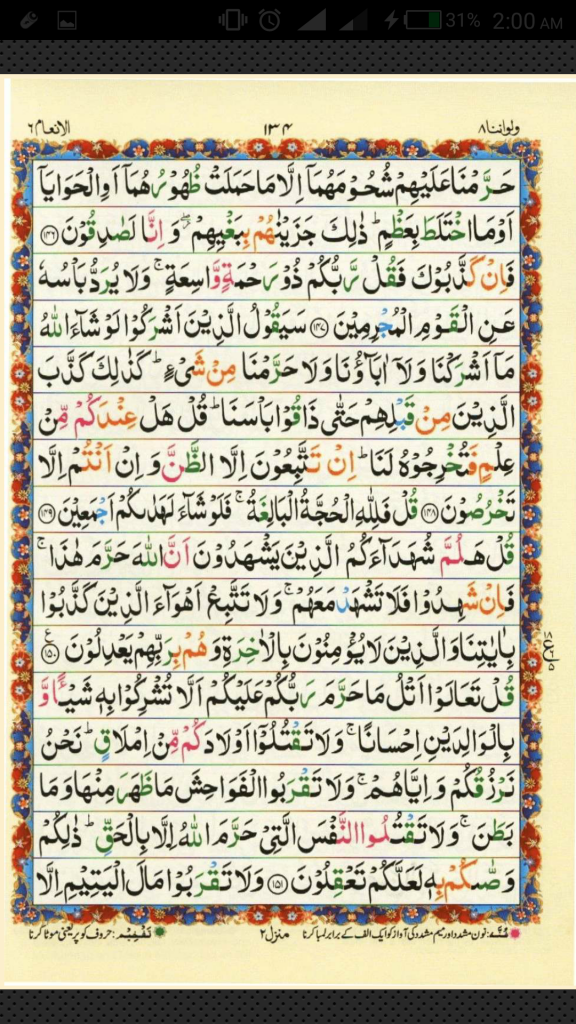 31% 2:00 AM
ولواننا ٨ ١٣٤ الانعام ٦
حَرَّمْنَا عَلَيْهِمْ شُحُوْمَهُمَاۤ اِلَّا مَا حَمَلَتْ ظُهُوْرُهُمَاۤ اَوِ الْحَوَايَاۤ
اَوْ مَا اخْتَلَطَ بِعَظْمٍ ؕ ذٰلِكَ جَزَيْنٰهُمْ بِبَغْيِهِمْ ۖ وَ اِنَّا لَصٰدِقُوْنَ ﴿۱۴۶﴾
فَاِنْ كَذَّبُوْكَ فَقُلْ رَّبُّكُمْ ذُوْ رَحْمَةٍ وَّاسِعَةٍ ۚ وَلَا يُرَدُّ بَاْسُهٗ
عَنِ الْقَوْمِ الْمُجْرِمِيْنَ ﴿۱۴۷﴾ سَيَقُوْلُ الَّذِيْنَ اَشْرَكُوْا لَوْ شَآءَ اللّٰهُ
مَاۤ اَشْرَكْنَا وَلَاۤ اٰبَآؤُنَا وَلَا حَرَّمْنَا مِنْ شَيْءٍ ؕ كَذٰلِكَ كَذَّبَ
الَّذِيْنَ مِنْ قَبْلِهِمْ حَتّٰى ذَاقُوْا بَاْسَنَا ؕ قُلْ هَلْ عِنْدَكُمْ مِّنْ
عِلْمٍ فَتُخْرِجُوْهُ لَنَا ؕ اِنْ تَتَّبِعُوْنَ اِلَّا الظَّنَّ وَ اِنْ اَنْتُمْ اِلَّا
تَخْرُصُوْنَ ﴿۱۴۸﴾ قُلْ فَلِلّٰهِ الْحُجَّةُ الْبَالِغَةُ ۚ فَلَوْ شَآءَ لَهَدٰىكُمْ اَجْمَعِيْنَ ﴿۱۴۹﴾
قُلْ هَلُمَّ شُهَدَآءَكُمُ الَّذِيْنَ يَشْهَدُوْنَ اَنَّ اللّٰهَ حَرَّمَ هٰذَا ۚ
فَاِنْ شَهِدُوْا فَلَا تَشْهَدْ مَعَهُمْ ۚ وَلَا تَتَّبِعْ اَهْوَآءَ الَّذِيْنَ كَذَّبُوْا
بِاٰيٰتِنَا وَالَّذِيْنَ لَا يُؤْمِنُوْنَ بِالْاٰخِرَةِ وَهُمْ بِرَبِّهِمْ يَعْدِلُوْنَ ﴿۱۵۰﴾ ع
قُلْ تَعَالَوْا اَتْلُ مَا حَرَّمَ رَبُّكُمْ عَلَيْكُمْ اَلَّا تُشْرِكُوْا بِهٖ شَيْـًٔا وَّ
بِالْوَالِدَيْنِ اِحْسَانًا ۚ وَلَا تَقْتُلُوْۤا اَوْلَادَكُمْ مِّنْ اِمْلَاقٍ ؕ نَحْنُ
نَرْزُقُكُمْ وَ اِيَّاهُمْ ۚ وَلَا تَقْرَبُوا الْفَوَاحِشَ مَا ظَهَرَ مِنْهَا وَمَا
بَطَنَ ۚ وَلَا تَقْتُلُوا النَّفْسَ الَّتِيْ حَرَّمَ اللّٰهُ اِلَّا بِالْحَقِّ ؕ ذٰلِكُمْ
وَصّٰىكُمْ بِهٖ لَعَلَّكُمْ تَعْقِلُوْنَ ﴿۱۵۱﴾ وَلَا تَقْرَبُوْا مَالَ الْيَتِيْمِ اِلَّا
غُنَّہ: نون مشدد اور میم مشدد کی آواز کو ایک الف کے برابر لمبا کرنا منزل ۲ تَفْخِیْم: حروف کو پر یعنی موٹا کرنا